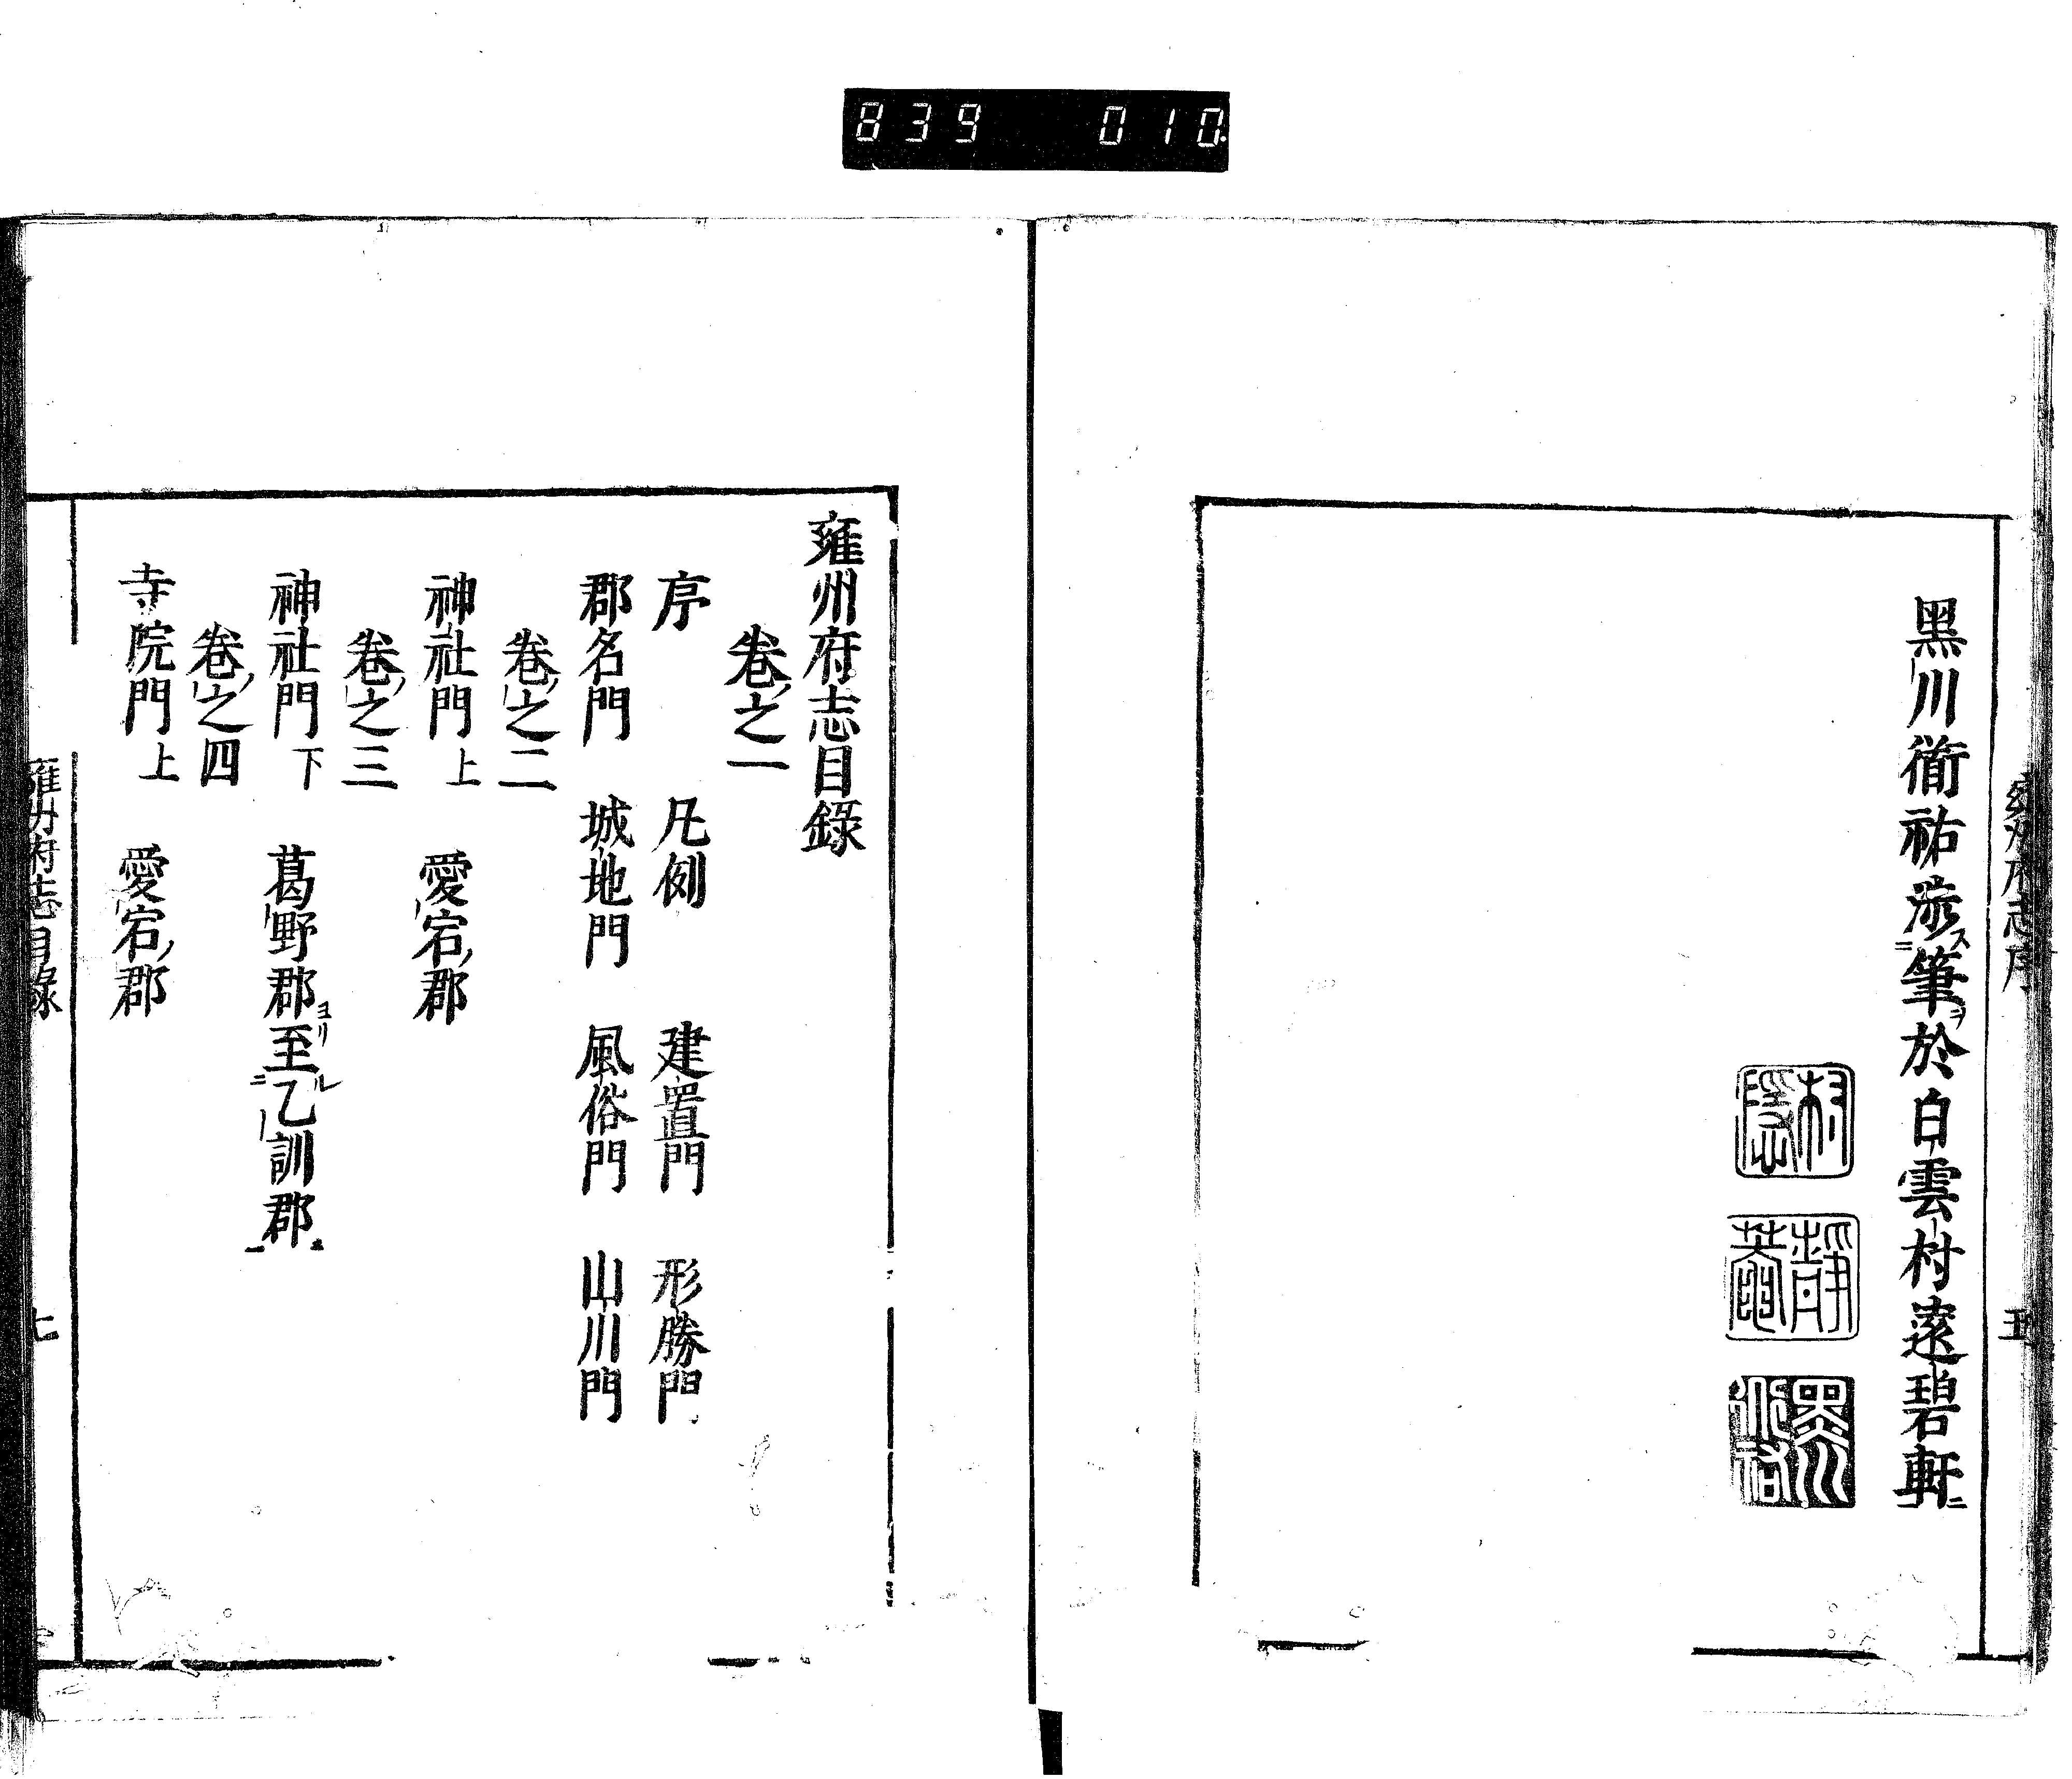 839 010
黒川衜祐渉筆於白雲村遠碧軒
雍州府志目錄
卷之一
序 凡例 建置門 形勝門
郡名門 城地門 風俗門 山川門
卷之二
神社門上 愛宕郡
卷之三
神社門下 葛野郡ヨリ至ル乙訓郡ニ
卷之四
寺院門上 愛宕郡
雍州府志目錄 七